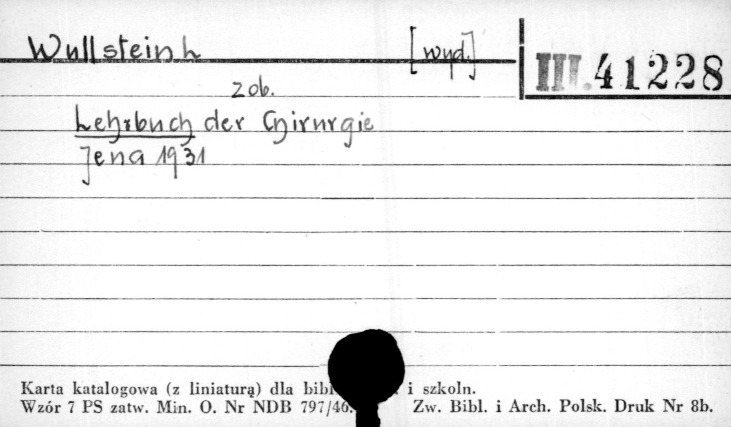 Wullstein L [wyd.] III.41228
zob.
Lehrbuch der Chirurgie
Jena 1931
Karta katalogowa (z liniaturą) dla bibl i szkoln.
Wzór 7 PS zatw. Min. O. Nr NDB 797/46. Zw. Bibl. i Arch. Polsk. Druk Nr 8b.